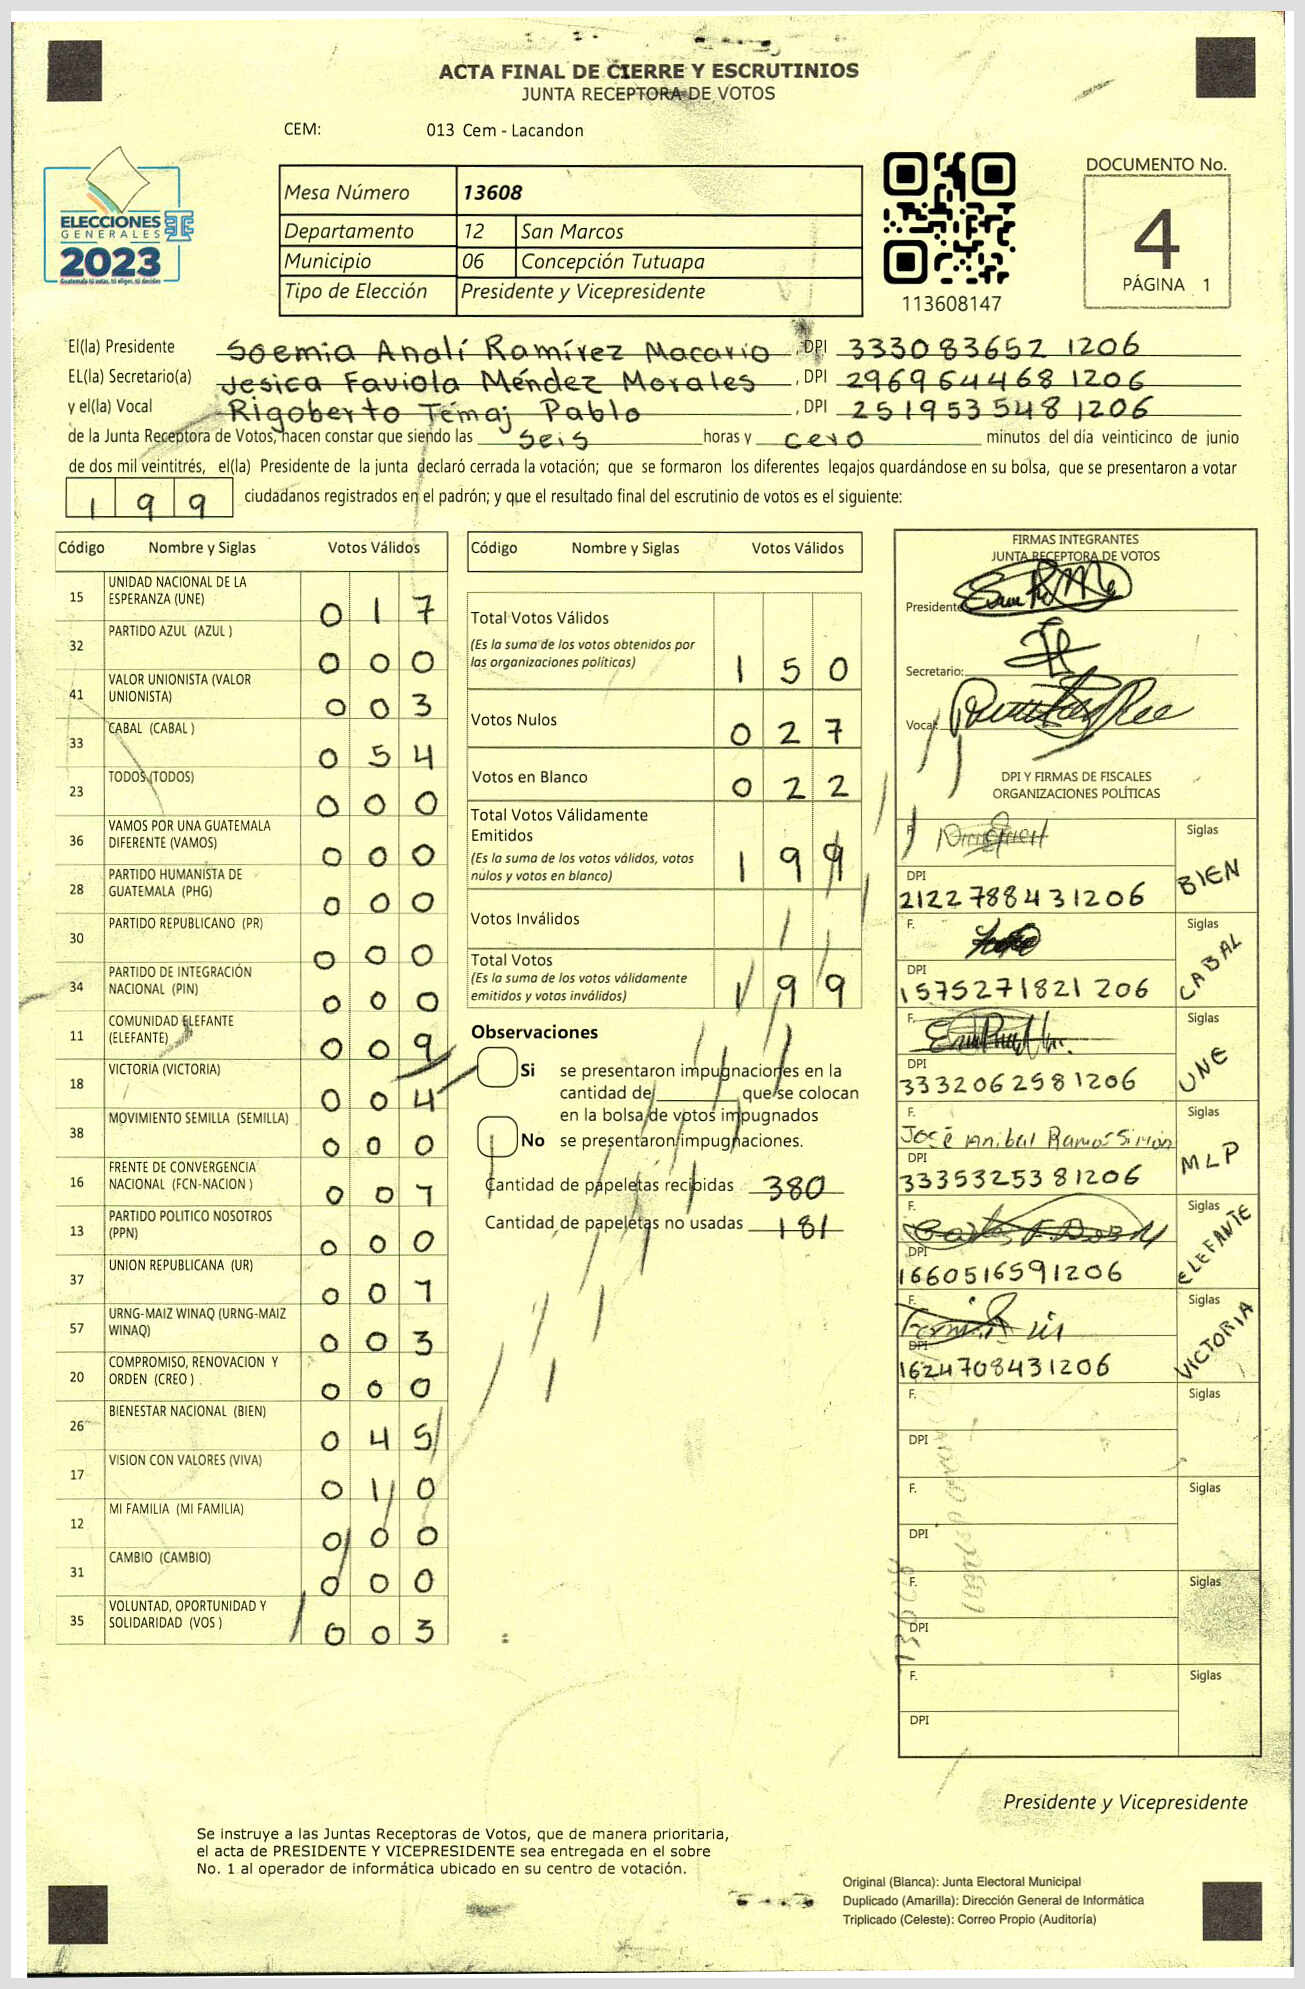 ACTA FINAL DE CIERRE Y ESCRUTINIOS
JUNTA RECEPTORA DE VOTOS
CEM: 013 Cem - Lacandon
ELECCIONES
GENERALES
2023
Guatemala tú votas, tú eliges, tú decides
Mesa Número 13608
Departamento 12 San Marcos
Municipio 06 Concepción Tutuapa
Tipo de Elección Presidente y Vicepresidente
113608147
DOCUMENTO No.
4
PÁGINA 1
El(la) Presidente Soemia Analí Ramírez Macario , DPI 333083652 1206
EL(la) Secretario(a) Jesica Faviola Méndez Morales , DPI 296964468 1206
y el(la) Vocal Rigoberto Témaj Pablo , DPI 251953548 1206
de la Junta Receptora de Votos, hacen constar que siendo las seis horas y cero minutos del día veinticinco de junio
de dos mil veintitrés, el(la) Presidente de la junta declaró cerrada la votación; que se formaron los diferentes legajos guardándose en su bolsa, que se presentaron a votar
199 ciudadanos registrados en el padrón; y que el resultado final del escrutinio de votos es el siguiente:
Código Nombre y Siglas Votos Válidos
15 UNIDAD NACIONAL DE LA ESPERANZA (UNE) 017
32 PARTIDO AZUL (AZUL ) 000
41 VALOR UNIONISTA (VALOR UNIONISTA) 003
33 CABAL (CABAL ) 054
23 TODOS (TODOS) 000
36 VAMOS POR UNA GUATEMALA DIFERENTE (VAMOS) 000
28 PARTIDO HUMANISTA DE GUATEMALA (PHG) 000
30 PARTIDO REPUBLICANO (PR) 000
34 PARTIDO DE INTEGRACIÓN NACIONAL (PIN) 000
11 COMUNIDAD ELEFANTE (ELEFANTE) 009
18 VICTORIA (VICTORIA) 004
38 MOVIMIENTO SEMILLA (SEMILLA) 000
16 FRENTE DE CONVERGENCIA NACIONAL (FCN-NACION ) 001
13 PARTIDO POLITICO NOSOTROS (PPN) 000
37 UNION REPUBLICANA (UR) 001
57 URNG-MAIZ WINAQ (URNG-MAIZ WINAQ) 003
20 COMPROMISO, RENOVACION Y ORDEN (CREO ) 000
26 BIENESTAR NACIONAL (BIEN) 045
17 VISION CON VALORES (VIVA) 010
12 MI FAMILIA (MI FAMILIA) 000
31 CAMBIO (CAMBIO) 000
35 VOLUNTAD, OPORTUNIDAD Y SOLIDARIDAD (VOS ) 003
Código Nombre y Siglas Votos Válidos
Total Votos Válidos
(Es la suma de los votos obtenidos por
las organizaciones políticas) 150
Votos Nulos 027
Votos en Blanco 022
Total Votos Válidamente
Emitidos
(Es la suma de los votos válidos, votos
nulos y votos en blanco) 199
Votos Inválidos
Total Votos
(Es la suma de los votos válidamente
emitidos y votos inválidos) 199
Observaciones
Si se presentaron impugnaciones en la
cantidad de ________ que se colocan
en la bolsa de votos impugnados
No se presentaron impugnaciones.
Cantidad de papeletas recibidas 380
Cantidad de papeletas no usadas 181
FIRMAS INTEGRANTES
JUNTA RECEPTORA DE VOTOS
Presidente
Secretario:
Vocal:
DPI Y FIRMAS DE FISCALES
ORGANIZACIONES POLÍTICAS
F. Siglas
DPI BIEN
212278843 1206
F. Siglas
DPI CABAL
1575271821 206
F. Siglas
DPI UNE
333206258 1206
F. Siglas
José Anibal Ramos Simón
DPI MLP
333532538 1206
F. Siglas
DPI ELEFANTE
1660516591206
F. Siglas
DPI VICTORIA
1624708431206
F. Siglas
DPI
F. Siglas
DPI
F. Siglas
DPI
F. Siglas
DPI
Presidente y Vicepresidente
Se instruye a las Juntas Receptoras de Votos, que de manera prioritaria,
el acta de PRESIDENTE Y VICEPRESIDENTE sea entregada en el sobre
No. 1 al operador de informática ubicado en su centro de votación.
Original (Blanca): Junta Electoral Municipal
Duplicado (Amarilla): Dirección General de Informática
Triplicado (Celeste): Correo Propio (Auditoría)